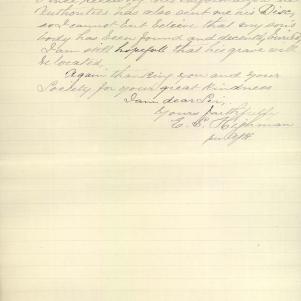 authorities has also sent me his Disc,
so I cannot but believe that my son's
body has been found and decently buried,
I am still hopefull that his grave will
be located,
Again thanking you and your
Society for your great kindness
I am dear Sir,
Yours faithfully